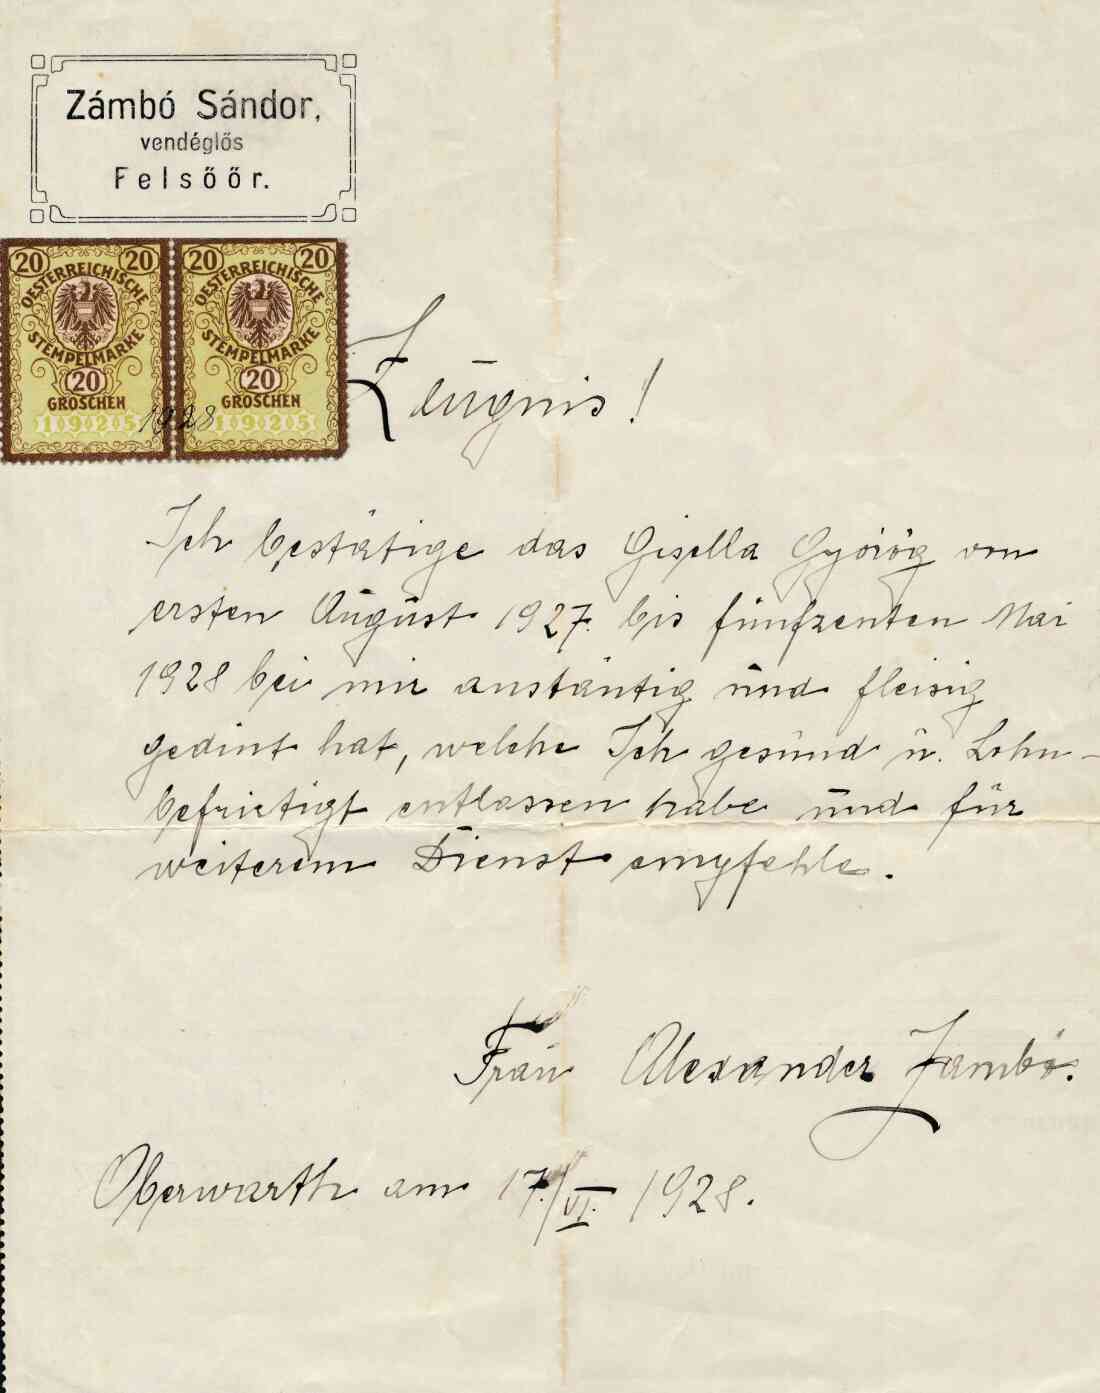 Zámbó Sándor,
vendéglős
Felsőőr.
20 20 20 20
OESTERREICHISCHE OESTERREICHISCHE
STEMPELMARKE STEMPELMARKE
20 20
GROSCHEN GROSCHEN
1925 1928 1925
Zeugnis!
Ich bestätige das Gisella György von
ersten August 1927. bis fünfzenten Mai
1928 bei mir anstäntig und fleisig
gedint hat, welche Ich gesund u. Lohn-
befrietigt entlassen habe und für
weiterem Dienst empfehle.
Frau Alexander Zambó.
Oberwarth am 17./VI. 1928.